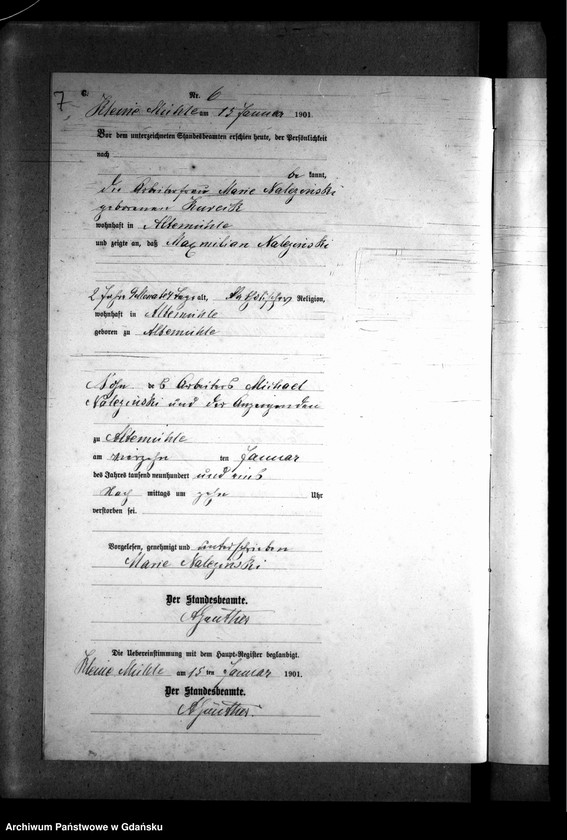 7.
C.
Nr. 6
Kleine Mühle am 15 Januar 1901.
Vor dem unterzeichneten Standesbeamten erschien heute, der Persönlichkeit
nach
be kannt,
die Arbeiterfrau Marie Nalezinski
geborenen Kurcik
wohnhaft in Altemühle
und zeigte an, daß Maxmilian Nalezinski
2 Jahr Monat Tage alt, katholischer Religion,
wohnhaft in Altemühle
geboren zu Altemühle
Sohn des Arbeiters Michael
Nalezinski und der Anzeigenden
zu Altemühle
am vierzehn ten Januar
des Jahres tausend neunhundert und eins
Nach mittags um zehn Uhr
verstorben sei.
Vorgelesen, genehmigt und unterschrieben
Marie Nalezinski
Der Standesbeamte.
AGünther
Die Uebereinstimmung mit dem Haupt-Register beglaubigt.
Kleine Mühle am 15 ten Januar 1901.
Der Standesbeamte.
AGünther.
Archiwum Państwowe w Gdańsku